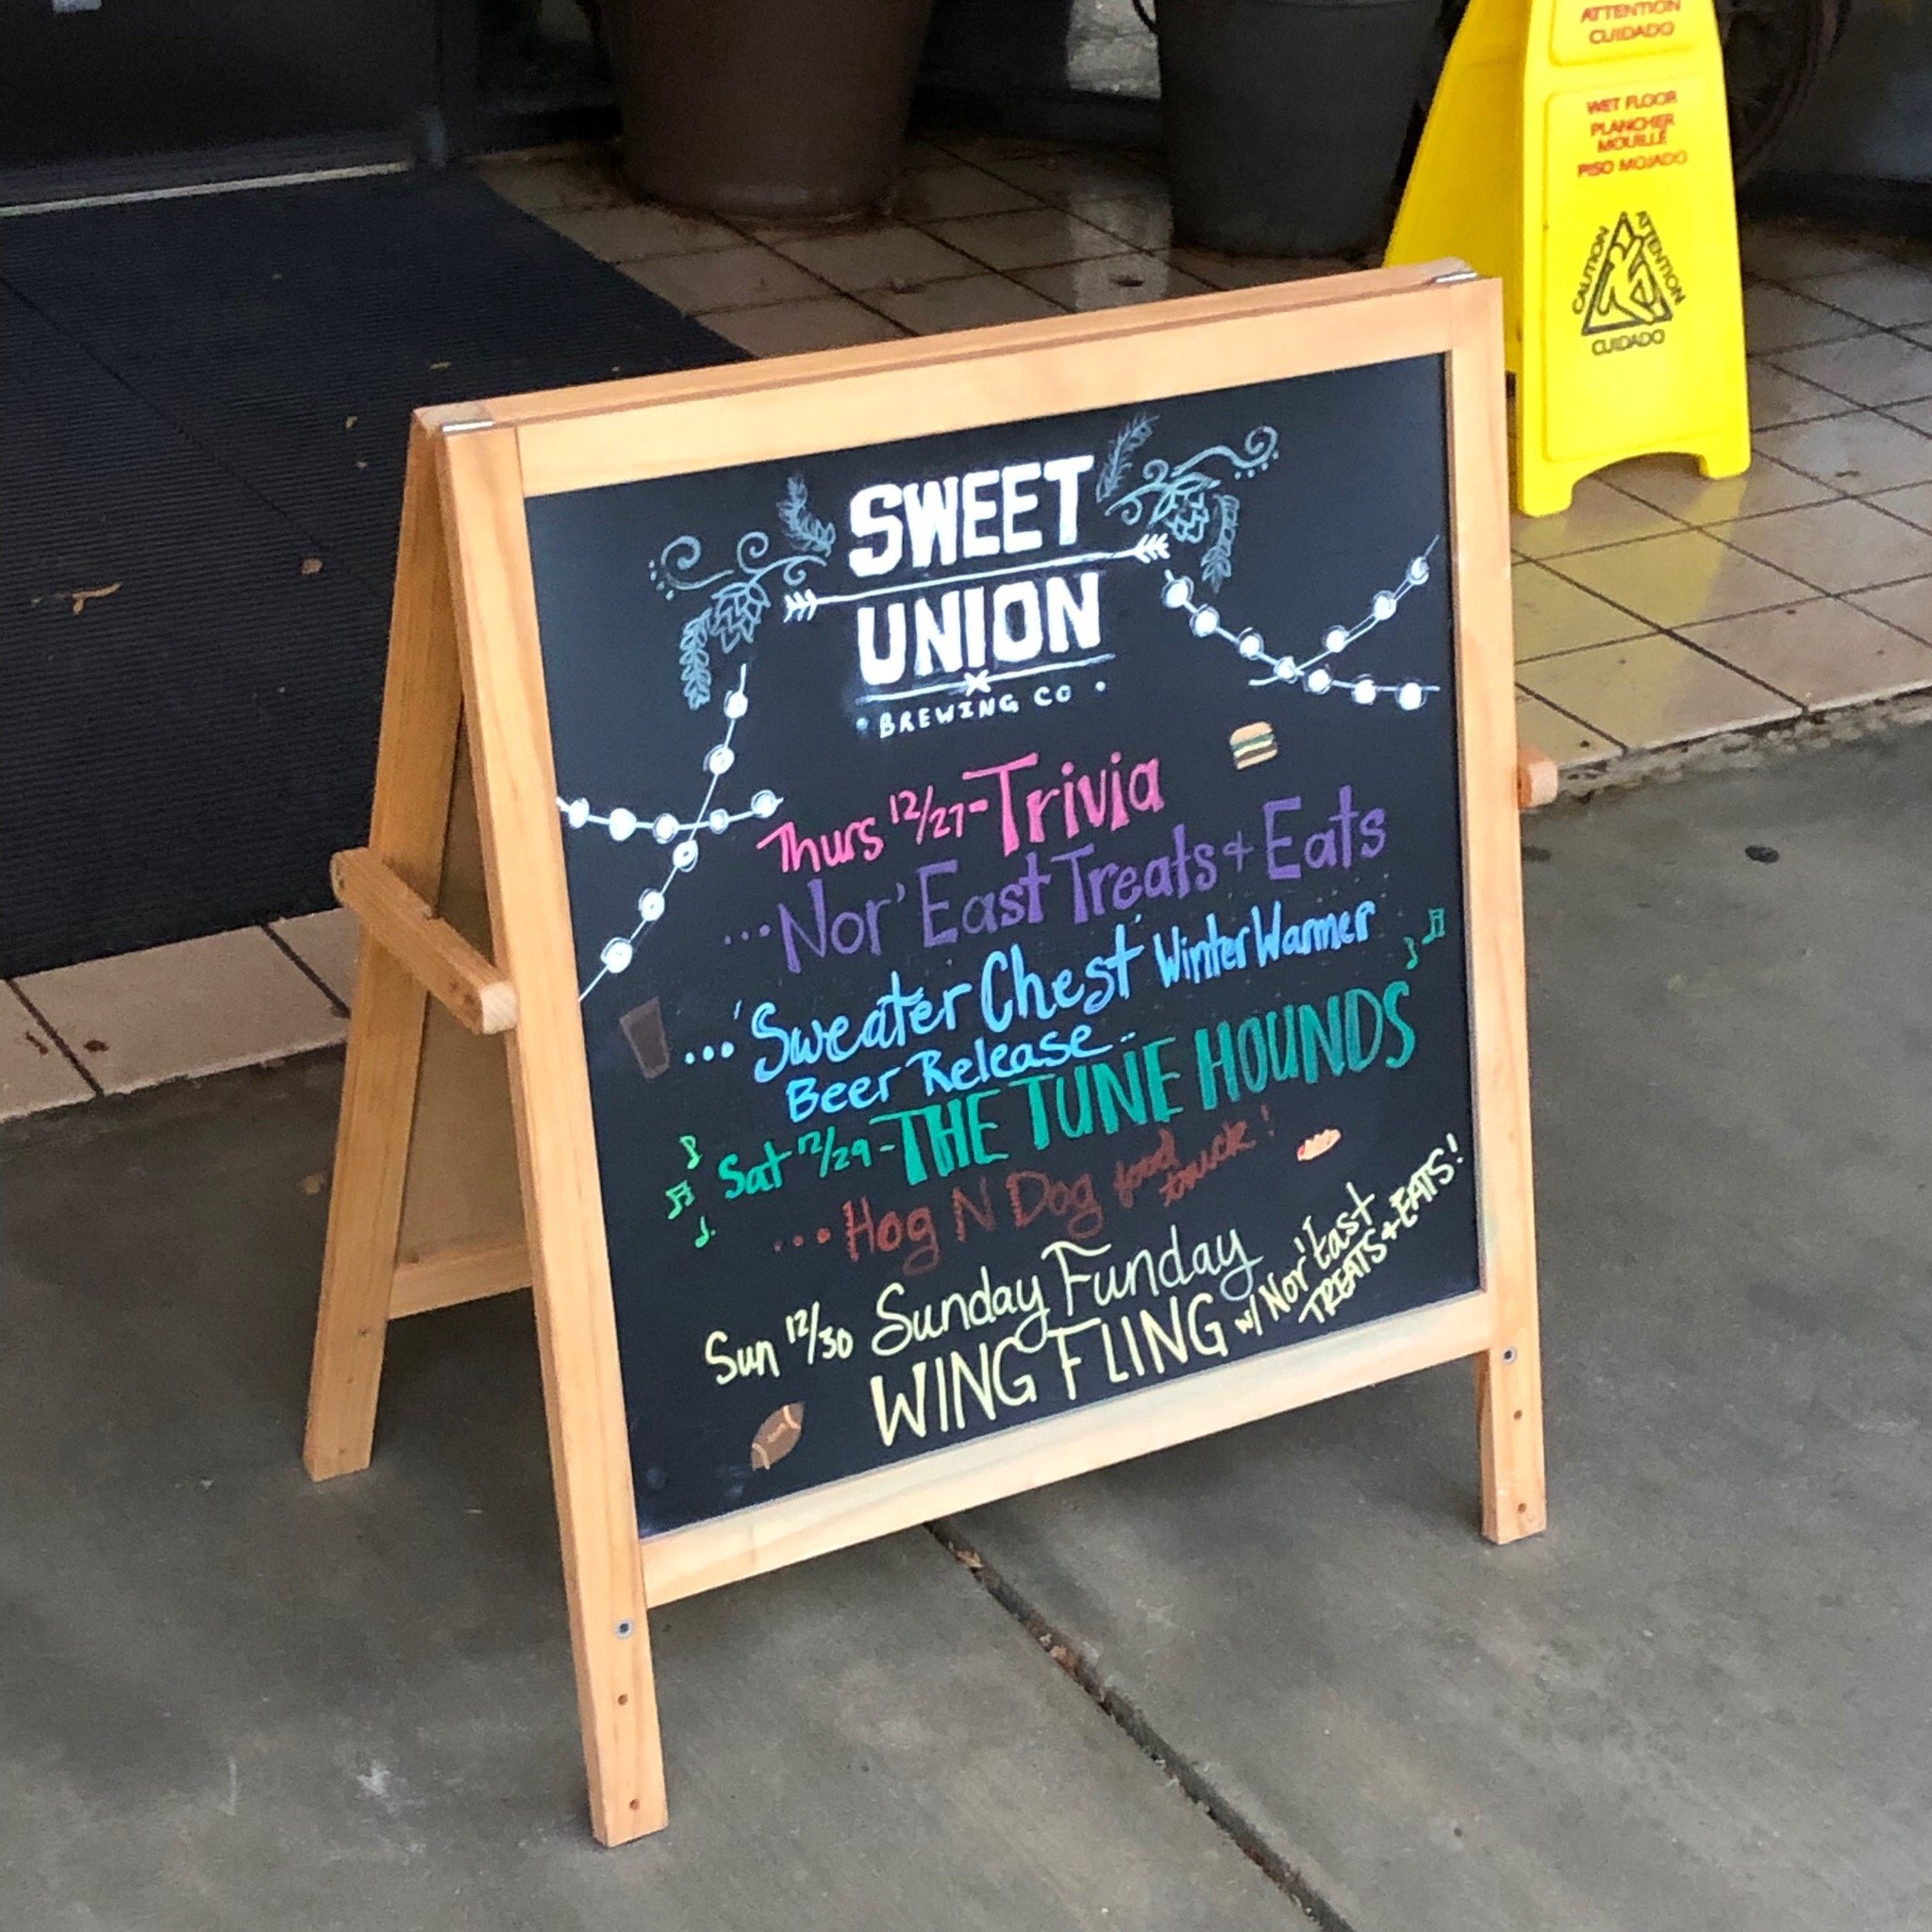 ATTENTION
CUIDADO
WET FLOOR
PLANCHER
MOUILLÉ
PISO MOJADO
CAUTION
ATTENTION
CUIDADO
SWEET
UNION
BREWING CO
Thurs 12/27-Trivia
...Nor'East Treats + Eats
...'Sweater Chest' Winter Warmer
Beer Release...
Sat 12/29-THE TUNE HOUNDS
...Hog N Dog food
truck!
Sun 12/30 Sunday Funday
WING FLING w/ Nor'East
TREATS + EATS!